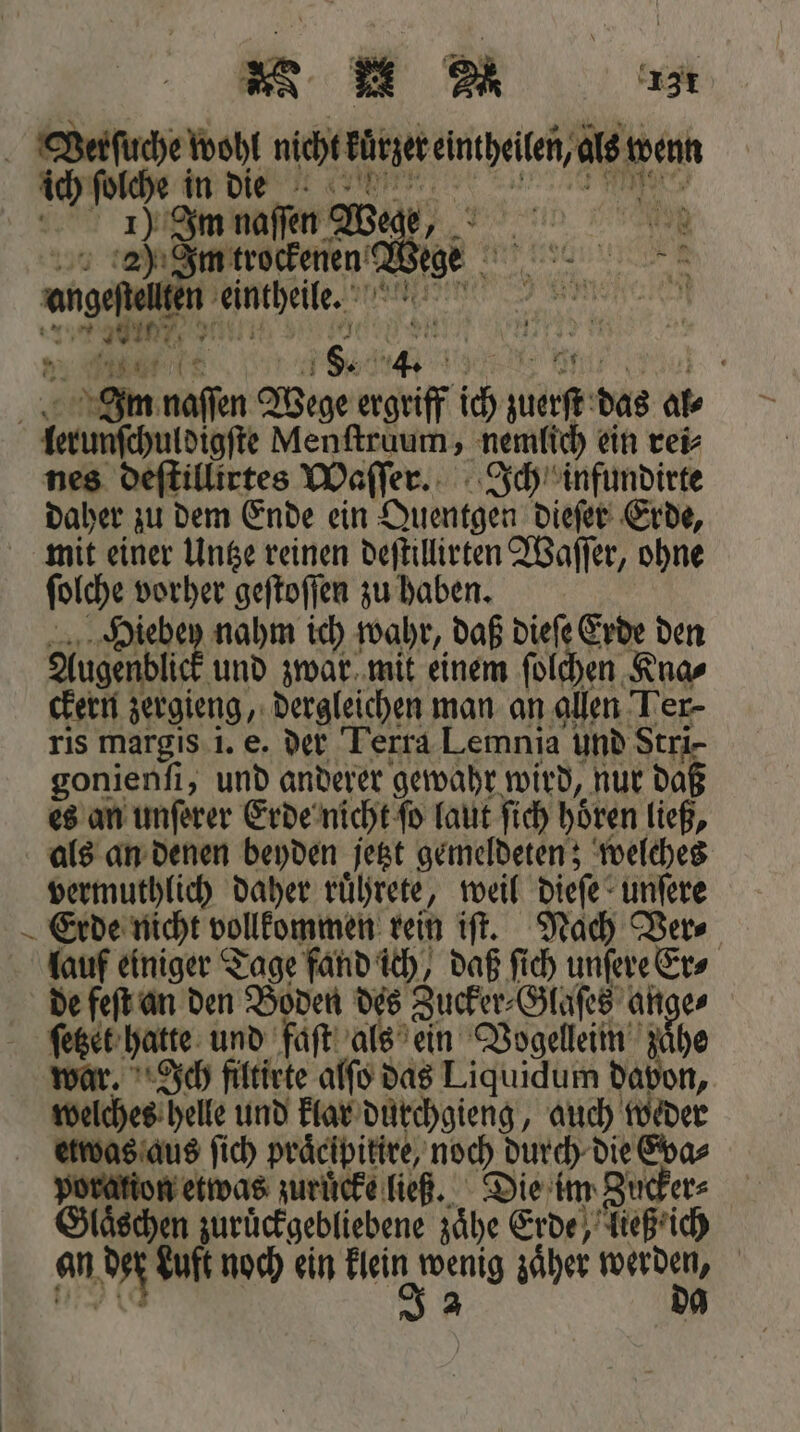 131
Verſuche wohl nicht kuͤrzer eintheilen, als wenn
ich ſolche in die
1) Im naſſen Wege,
2) Im trockenen Wege
angeſtellten eintheile.
§. 4.
Im naſſen Wege ergriff ich zuerſt das al⸗
lerunſchuldigſte Menſtruum, nemlich ein rei⸗
nes deſtillirtes Waſſer. Ich infundirte
daher zu dem Ende ein Quentgen dieſer Erde,
mit einer Untze reinen deſtillirten Waſſer, ohne
ſolche vorher geſtoſſen zu haben.
Hiebey nahm ich wahr, daß dieſe Erde den
Augenblick und zwar mit einem ſolchen Kna⸗
ckern zergieng, dergleichen man an allen Ter-
ris margis i. e. der Terra Lemnia und Stri-
gonienſi, und anderer gewahr wird, nur daß
es an unſerer Erde nicht ſo laut ſich hoͤren ließ,
als an denen beyden jetzt gemeldeten; welches
vermuthlich daher ruͤhrete, weil dieſe unſere
Erde nicht vollkommen rein iſt. Nach Ver⸗
lauf einiger Tage fand ich, daß ſich unſere Er⸗
de feſt an den Boden des Zucker⸗Glaſes ange⸗
ſetzet hatte und faſt als ein Vogelleim zaͤhe
war. Ich filtirte alſo das Liquidum davon,
welches helle und klar durchgieng, auch weder
etwas aus ſich praͤcipitire, noch durch die Eva⸗
poration etwas zuruͤcke ließ. Die im Zucker⸗
Glaͤschen zuruͤckgebliebene zaͤhe Erde, ließ ich
an der Luft noch ein klein wenig zaͤher werden,
J 2 da